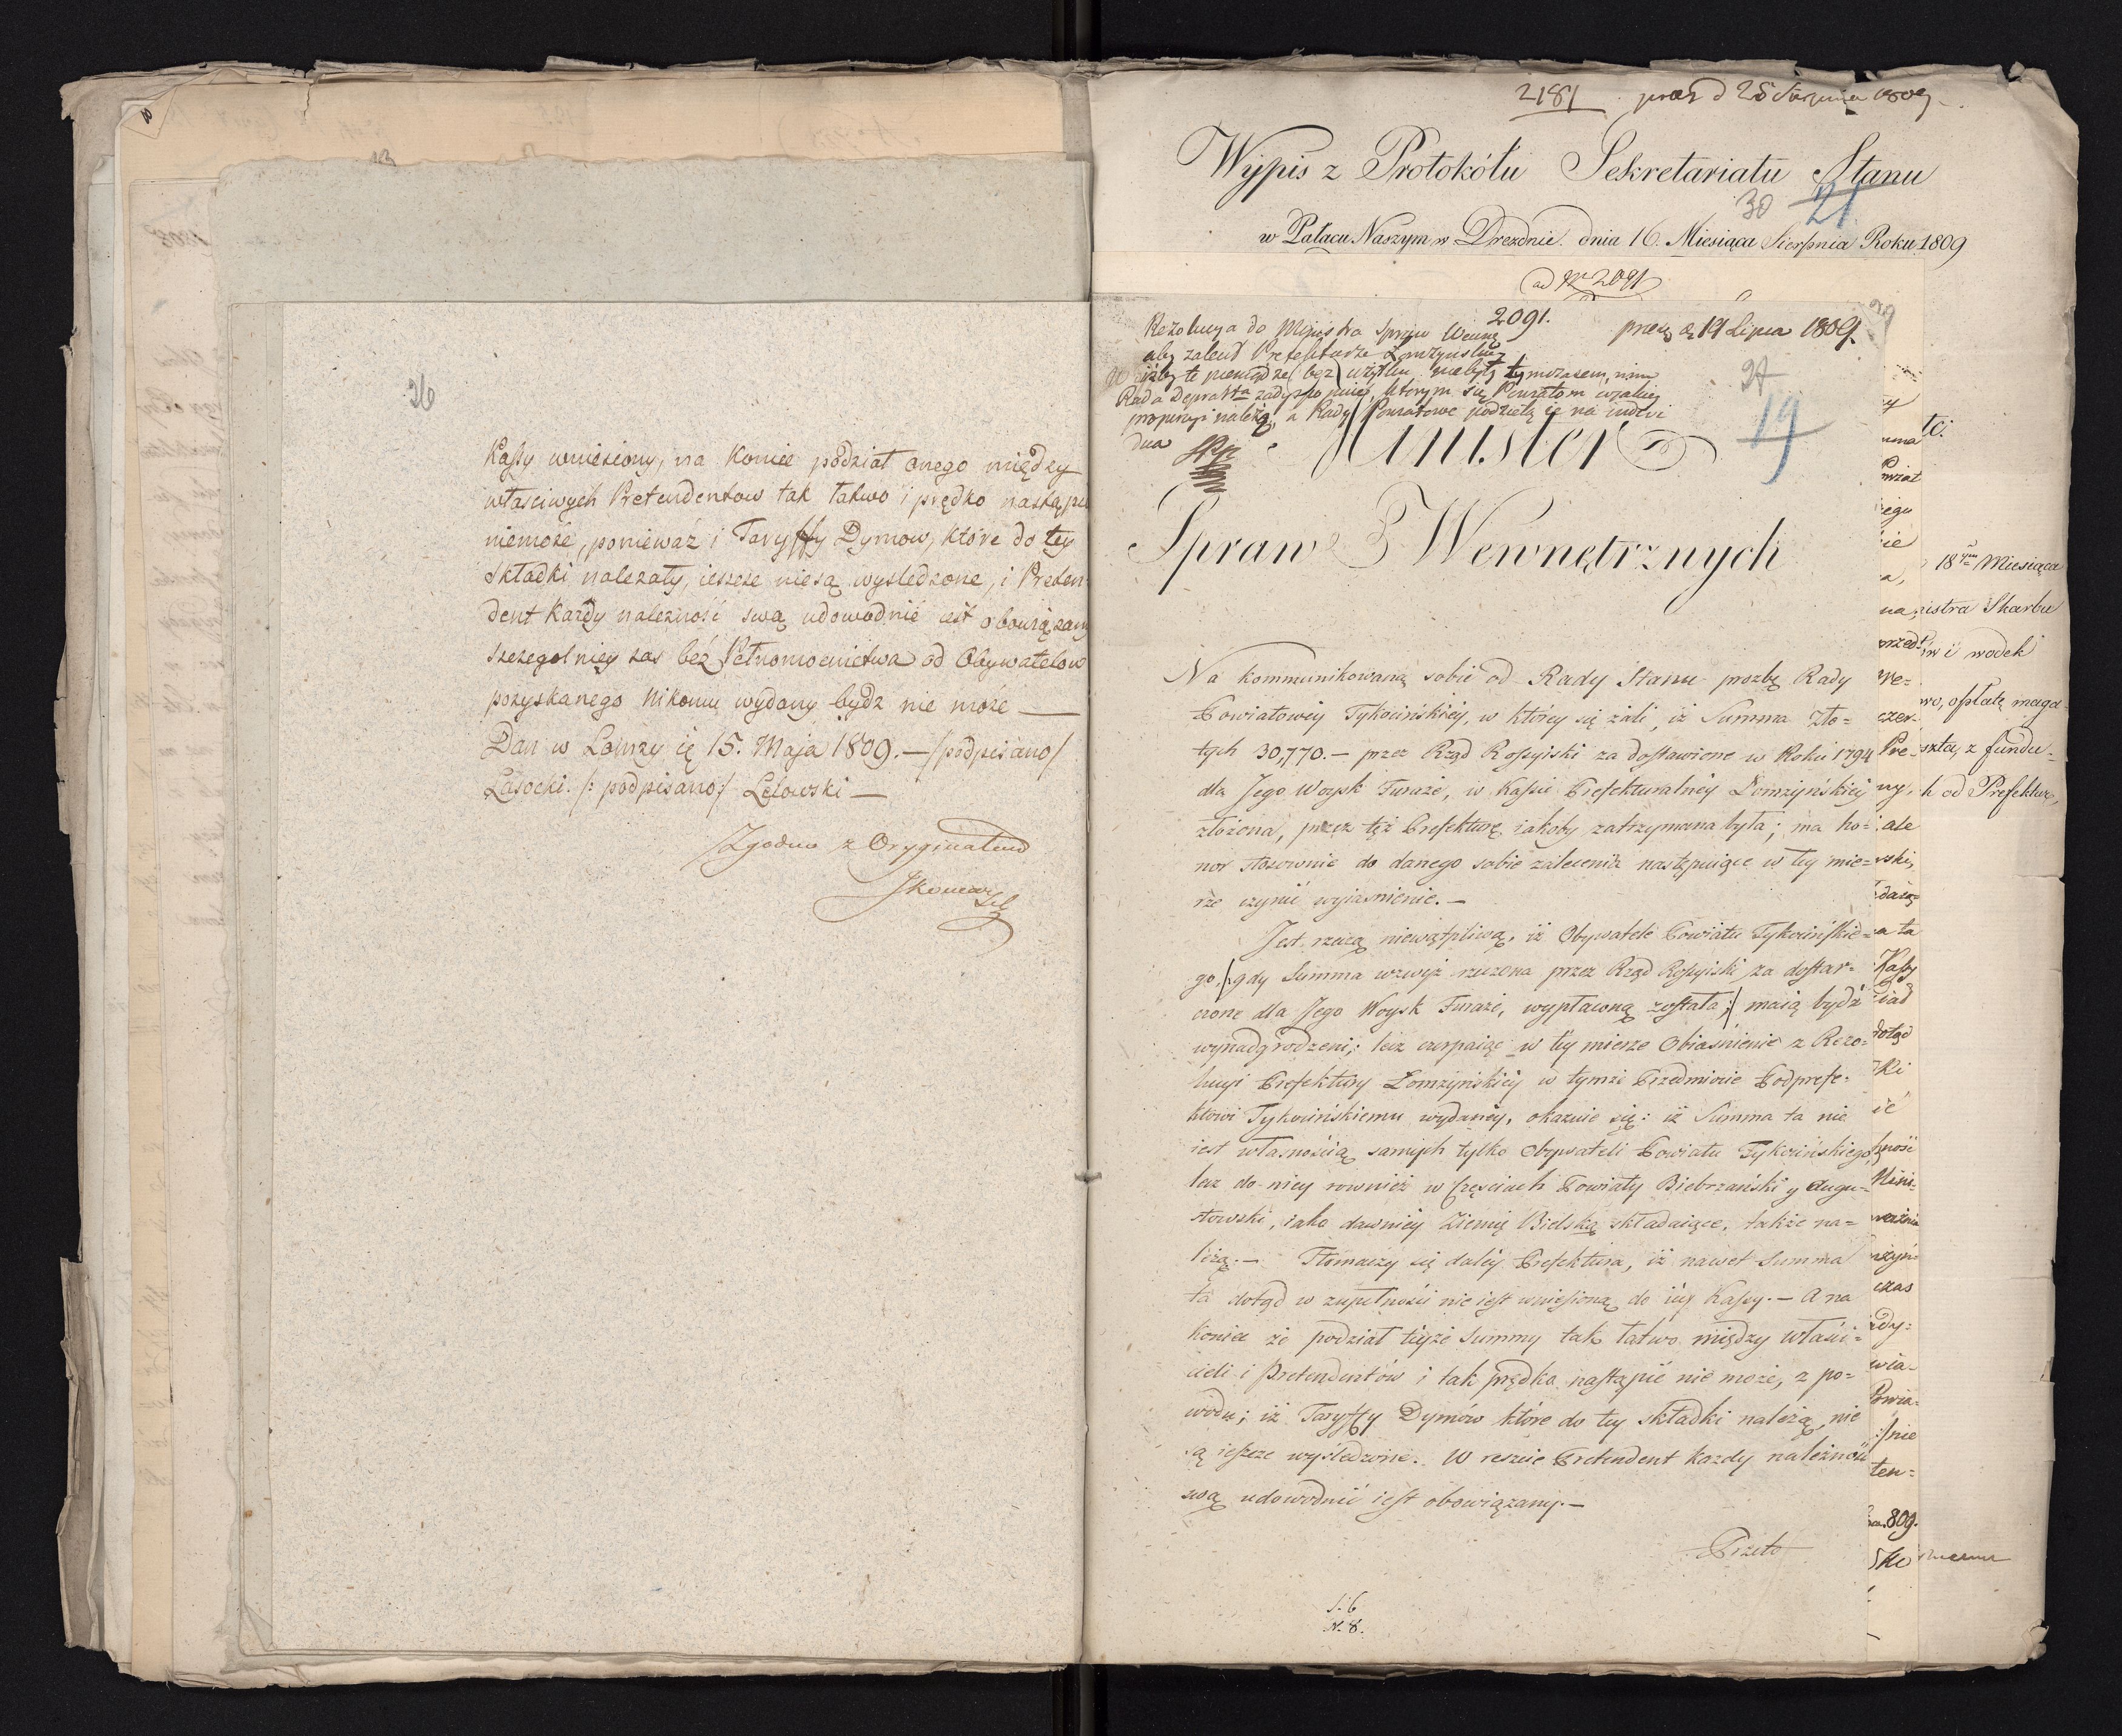 26
Kassy wniesiony, na koniec podział onego między
właściwych Pretendentow tak łatwo i prędko nastąpić
niemoże, ponieważ i Taryffy Dymow, które do tey
składki należały, ieszcze niesą wysledzone, i Preten-
dent każdy należność swą udowodnić iest obowiązany
szczegolniey zas bez Pełnomocnictwa od Obywatelow
pozyskanego nikomu wydany bydz nie może —
Dan w Łomzy 15. Maja 1809. — /podpisano/
Lasocki. /: podpisano:/ Lelowski —
Zgodno z Oryginałem
2181 praes d 25 Sierpnia 1809
Wypis z Protokółu Sekretariatu Stanu
30 21
w Pałacu Naszym w Dreznie. dnia 16. Miesiąca Sierpnia Roku 1809
ad N 2091
2091. praes d 19 Lipca 1809.
Rezolucya do Ministra Spraw Wewnę
aby zalecił Prefekturze Łomżyńskiey
iżby te pieniądze bez użytku niebyły tymczasem, nim
Rada zadysponuie, ktorym się Powiatom w iakiey
proporcyi należą, a Rady Powiatowe podzielą ie na indivi
dua
27
19
Minister
Spraw Wewnętrznych
Na kommunikowaną sobie od Rady Stanu prozbę Rady
Powiatowey Tykocińskiey, w którey się żali, iż Summa Zło=
tych 30,770. — przez Rząd Rossyiski za dostawione w Roku 1794
dla Jego Woysk Furaże, w Kassie Prefekturalney Łomżyńskiey
złożona, przez tęż Prefekturę iakoby zatrzymana była; ma ho=
nor stosownie do danego sobie zalecenia następuiące w tey mie=
rze czynić wyiasnienie. —
Jest rzeczą niewątpliwą, iż Obywatele Powiatu Tykocińskie=
go, /:gdy Summa wzwyż rzeczona przez Rząd Rossyiski za dostar=
czone dla Jego Woysk Furaże, wypłaconą została;/ maią bydź
wynadgrodzeni; lecz czerpaiąc w tey mierze Obiasnienie z Rezo=
lucyi Prefektury Łomżyńskiey w tymże Przedmiocie Podprefe=
ktowi Tykocińskiemu wydaney, okazuie się: iż Summa ta nie
iest własnością samych tylko Obywateli Powiatu Tykocińskiego,
lecz do niey rownież w Częsciach Powiaty Biebrzański y Augu=
stowski, iako dawniey Ziemię Bielską składaiące, także na=
leżą. — Tłomaczy się daley Prefektura, iż nawet Summa
ta dotąd w zupełności nie iest wniesioną do iey Kassy. — A na
koniec że podział teyże Summy tak łatwo między właści=
cieli i Pretendentów i tak prędko nastąpić nie może, z po=
wodu; iż Taryffy Dymów które do tey składki należą, nie
są ieszcze wyśledzone. W reszcie Pretendent każdy należność
swą udowodnić iest obowiązany. —
Przeto
S. 6
N. 8.
tc.
18 Miesiąca
istra Skarbu
ów i wodek
wo, opłatę maga
szta, z fundu=
h od Prefektur,